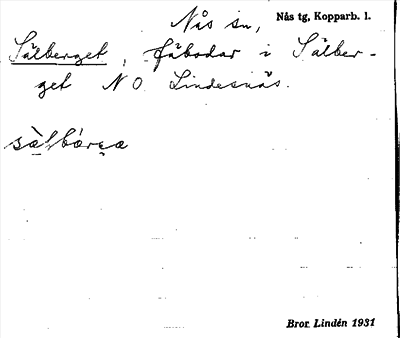 Nås sn, Nås tg, Kopparb. l.
Sälberget, fäbodar i Sälber-
get N O Lindesnäs.
Bror Lindén 1931